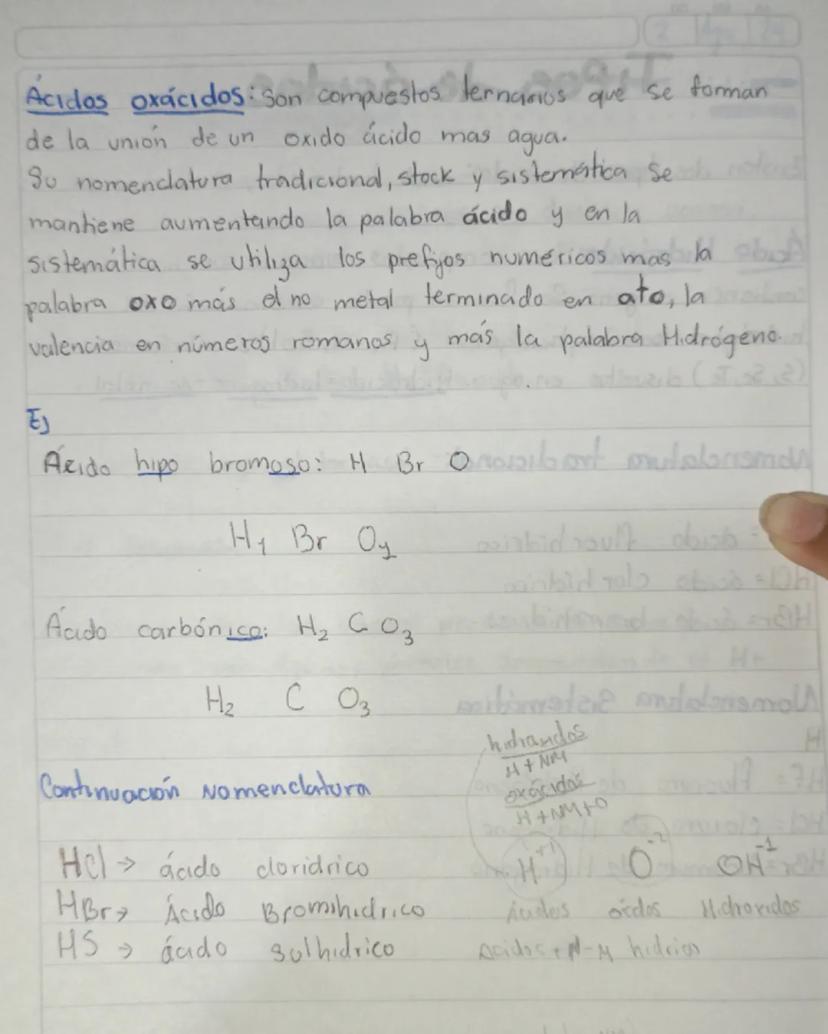 Ácidos oxácidos: Son compuestos ternarios que se forman
de la unión de un oxido ácido mas agua.
Su nomenclatura tradicional, stock y sistemática se
mantiene aumentando la palabra ácido y en la
sistemática se utiliza los prefijos numéricos mas la
palabra oxo más el no metal terminado en ato, la
valencia en números romanos y más la palabra Hidrógeno.
Ej
Ácido hipo bromoso: H Br O
H1 Br Oy
Ácido carbónico: H2 C O3
H2 C O3
hidrandos
H+NM
oxácidos
H+NM+O
Continuación Nomenclatura
HCl → ácido cloridrico H+1 O-2 OH-1
HBr → Ácido Bromihidrico Ácidos oxidos Hidroxidos
HS → ácido sulhidrico Acidos + N-M